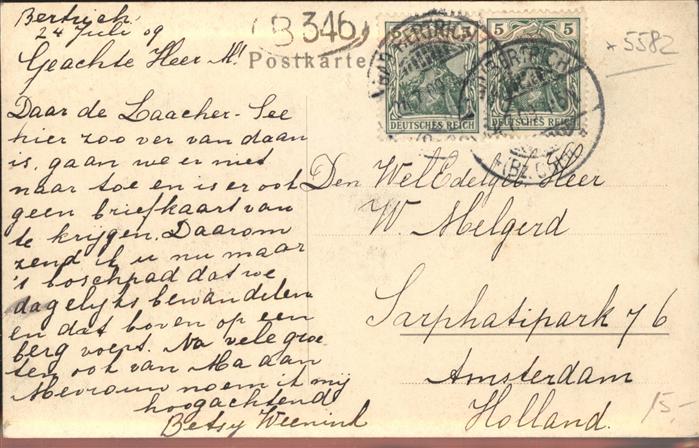 Bertrich
24 Juli 09
B 346
5
5582
Geachte Heer M!
Postkarte
DEUTSCHES REICH
DEUTSCHES REICH
Daar de Laacher-See
hier zoo ver van daan
is, gaan we er niet
naar toe en is er ook
geen briefkaart van
te krijgen. Daarom
zend ik u nu maar
't boschpad dat we
dagelijks bewandelen
en dat boven op een
berg voert. Na vele groe-
ten ook van Ma aan
Mevrouw noem ik mij
hoogachtend
Betsy Weenink
Den WelEdelgeb Heer
W. Melgerd
Sarphatipark 76
Amsterdam
Holland.
15-